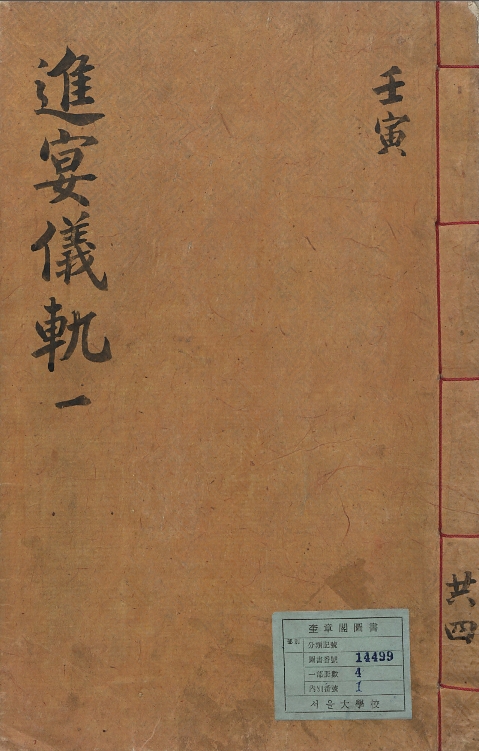 壬寅
進宴儀軌 一
共四
奎章閣圖書
分類記號
圖書番號 14499
一部冊數 4
內別番號 1
서울大學校